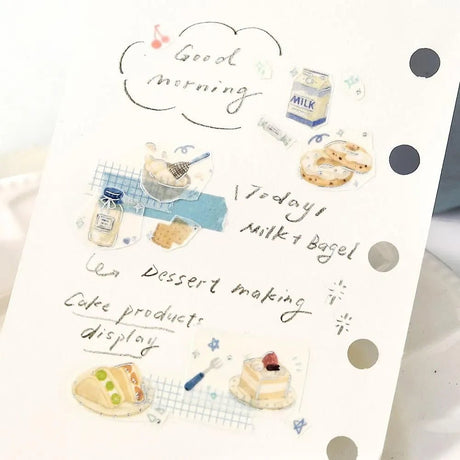 Good
morning
MILK
\Today/
Milk + Bagel
Dessert making
Cake products
display